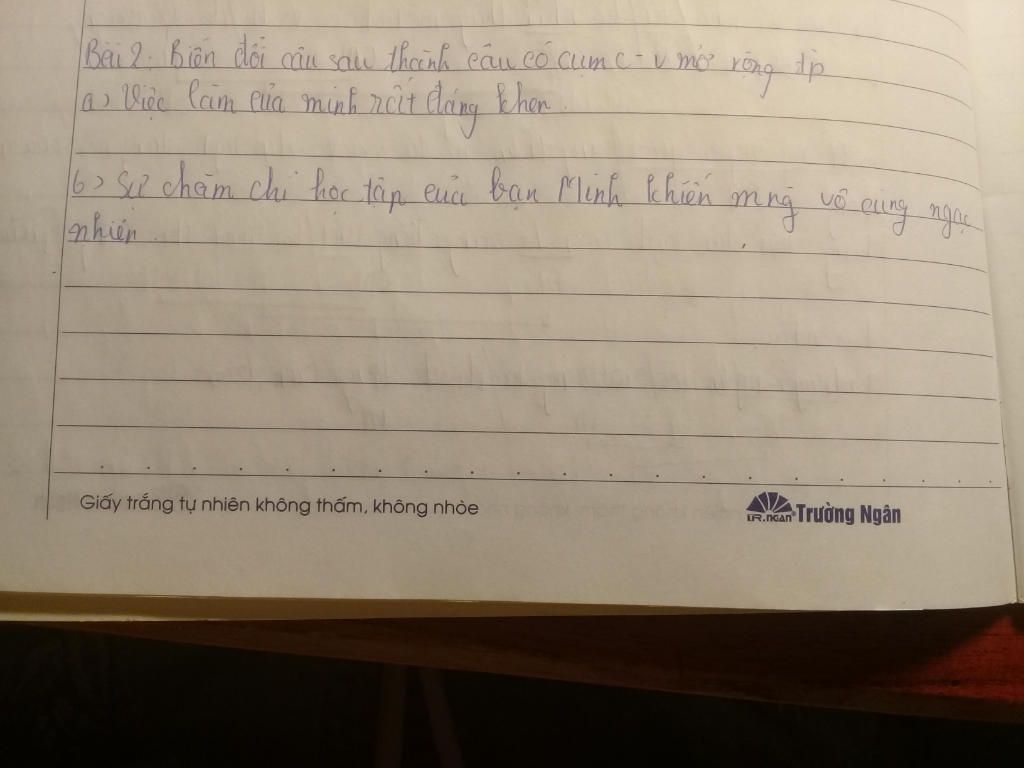 Bài 2. Biến đổi câu sau thành câu có cụm c-v mở rộng tp
a) Việc làm của minh rất đáng khen.
b) Sự chăm chỉ học tập của bạn Minh khiến mng vô cùng ngạc
nhiên
Giấy trắng tự nhiên không thấm, không nhòe
TR.NGAN Trường Ngân